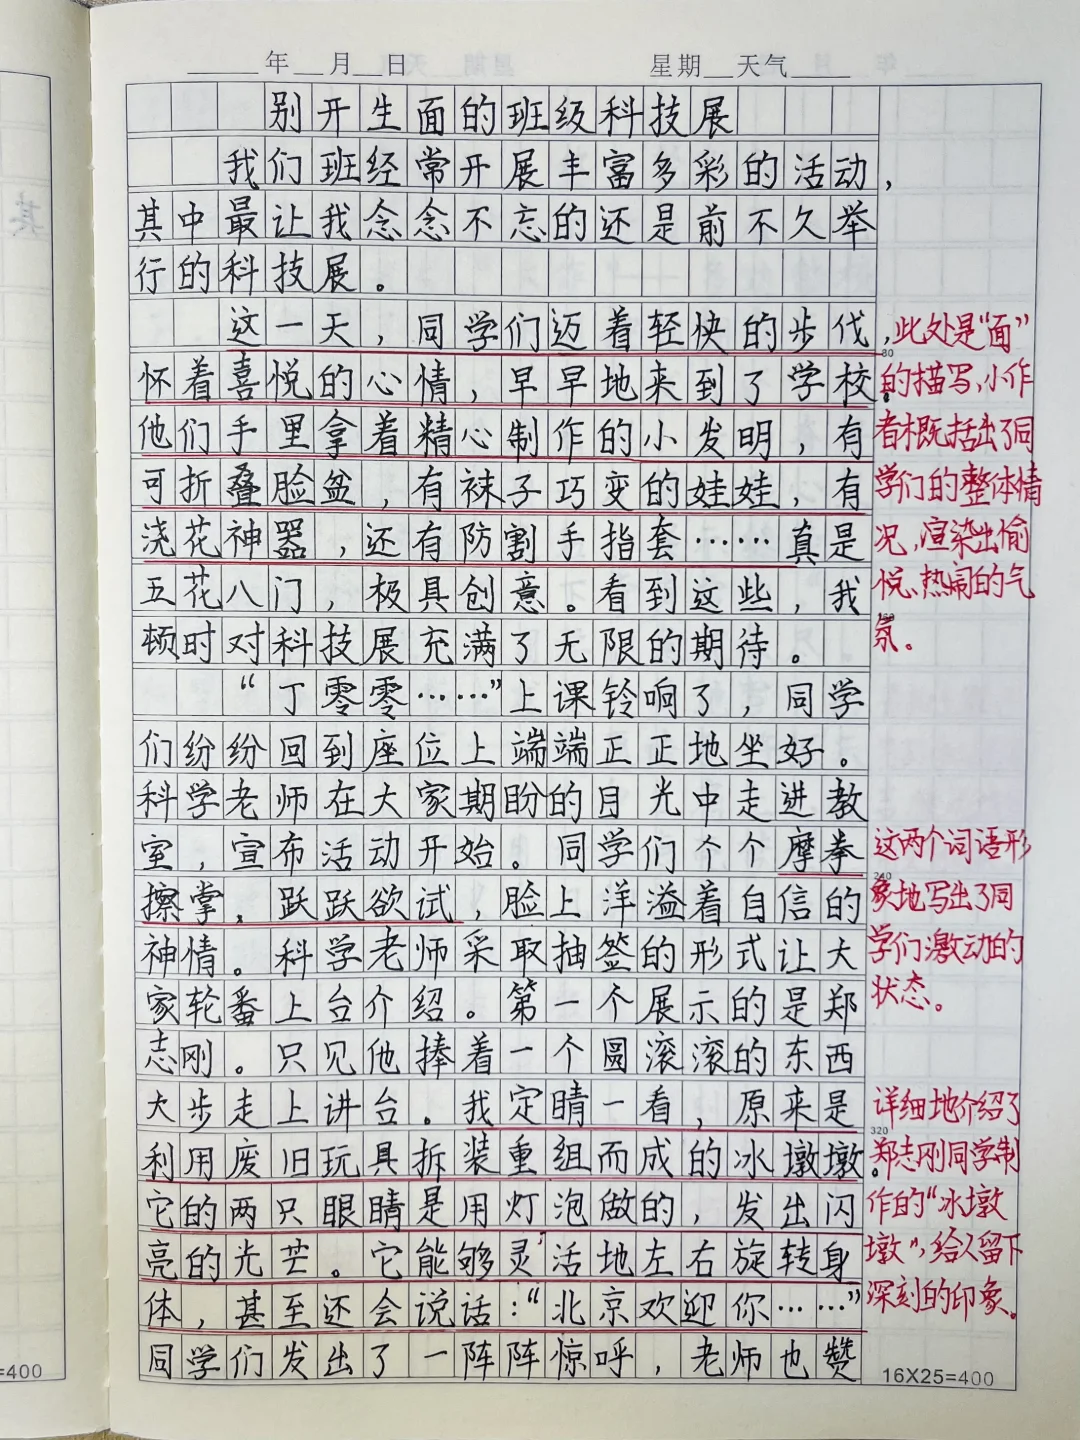 年 月 日 星期 天气
别开生面的班级科技展
我们班经常开展丰富多彩的活动，
其中最让我念念不忘的还是前不久举
行的科技展。
这一天，同学们迈着轻快的步伐，
怀着喜悦的心情，早早地来到了学校。
他们手里拿着精心制作的小发明，有
可折叠脸盆，有袜子巧变的娃娃，有
浇花神器，还有防割手指套……真是
五花八门，极具创意。看到这些，我
顿时对科技展充满了无限的期待。
“丁零零……”上课铃响了，同学
们纷纷回到座位上端端正正地坐好。
科学老师在大家期盼的目光中走进教
室，宣布活动开始。同学们个个摩拳
擦掌，跃跃欲试，脸上洋溢着自信的
神情。科学老师采取抽签的形式让大
家轮番上台介绍。第一个展示的是郑
志刚。只见他捧着一个圆滚滚的东西
大步走上讲台。我定睛一看，原来是
利用废旧玩具拆装重组而成的冰墩墩。
它的两只眼睛是用灯泡做的，发出闪
亮的光芒。它能够灵活地左右旋转身
体，甚至还会说话：“北京欢迎你……”
同学们发出了一阵阵惊呼，老师也赞
此处是“面”
的描写，小作
者概括出了同
学们的整体情
况，渲染出愉
悦、热闹的气
氛。
这两个词语形
象地写出了同
学们激动的
状态。
详细地介绍了
郑志刚同学制
作的“冰墩
墩”，给人留下
深刻的印象。
80
240
320
16X25=400
=400